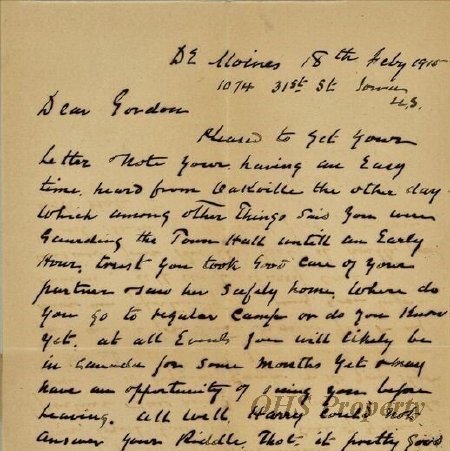 De Moines 18th Feby 1915
1074 31st St. Iowa
U.S.
Dear Gordon
Pleased to get your
letter & note your having an Easy
time, heard from Oakville the other day
which among other Things Said You were
Gaurding the Town Hall untill an Early
Hour, trust you took Good care of your
partner & saw her Safely home. Where do
you go to regular Camp or do you Know
yet. at all Events you will likely be
in Canada for some months yet & may
have an opportunity of seeing you before
leaving. all well. Harry could not
answer your Riddle, Thot it pretty Good
OHS Property